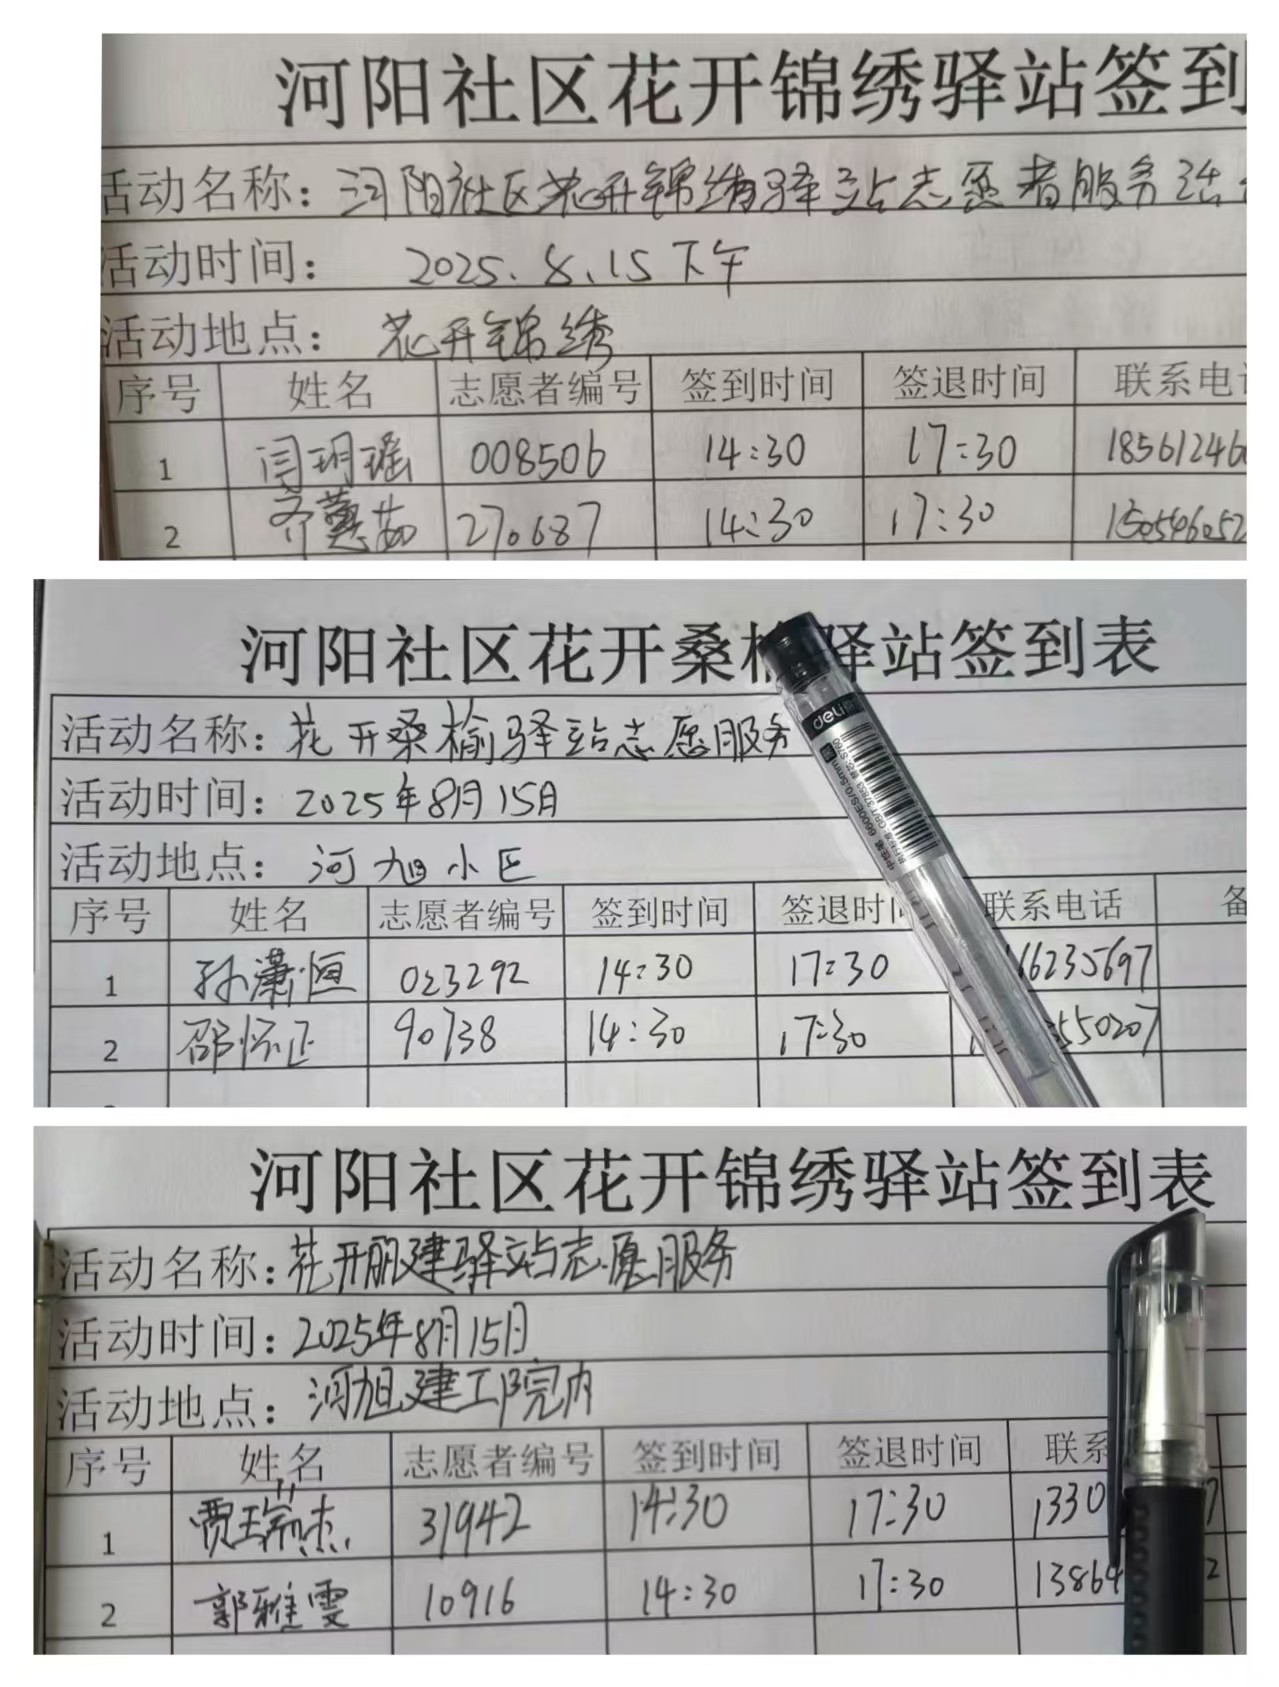 河阳社区花开锦绣驿站签到
活动名称：河阳社区花开锦绣驿站志愿者服务活
活动时间： 2025.8.15下午
活动地点： 花开锦绣
序号 姓名 志愿者编号 签到时间 签退时间 联系电话
1 闫玥瑶 008506 14:30 17:30 18561246
2 齐蕙茹 270687 14:30 17:30 150546052
河阳社区花开桑榆驿站签到表
活动名称：花开桑榆驿站志愿服务
活动时间：2025年8月15日
活动地点： 河旭小区
序号 姓名 志愿者编号 签到时间 签退时间 联系电话 备
1 孙潇恒 023292 14:30 17:30 16235697
2 邵怀正 90738 14:30 17:30 3550207
deli
河阳社区花开锦绣驿站签到表
活动名称：花开丽建驿站志愿服务
活动时间：2025年8月15日
活动地点： 河旭建工院内
序号 姓名 志愿者编号 签到时间 签退时间 联系
1 贾瑞杰 31942 14:30 17:30 1330 7
2 郭雅雯 10916 14:30 17:30 13864 2